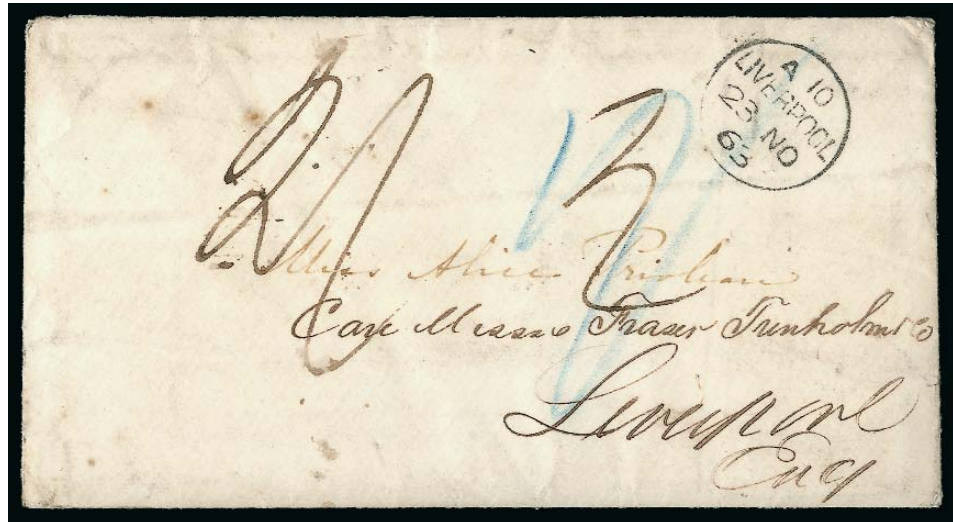 A 10
LIVERPOOL
23 NO
63
2/3
Miss Alice Prioleau
Care Messrs Fraser Trenholm & Co
Liverpool
Eng